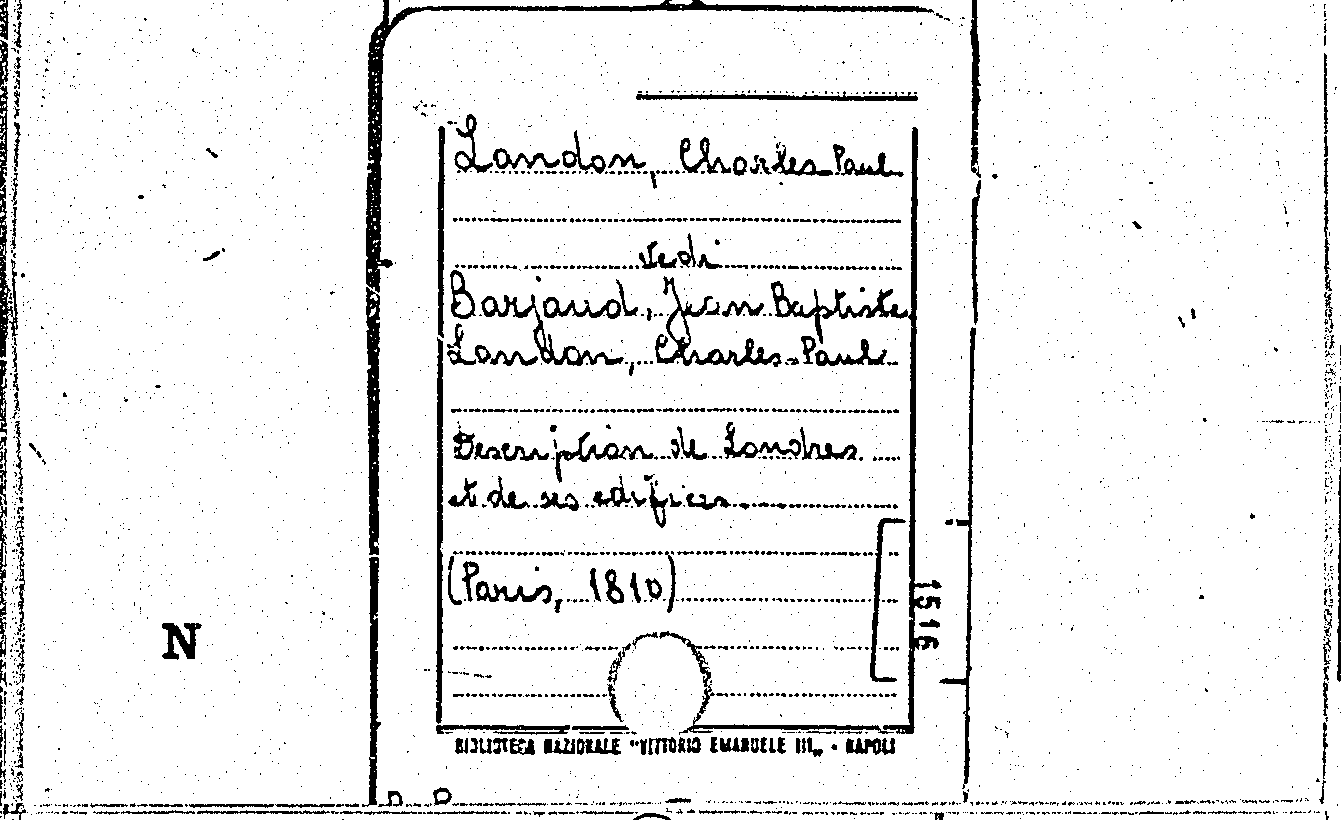 Landon, Charles-Paul
vedi
Barjaud, Jean Baptiste
Landon, Charles-Paul
Description de Londres
et de ses edifices
(Paris, 1810)
1516
N
BIBLIOTECA NAZIONALE "VITTORIO EMANUELE III„ - NAPOLI